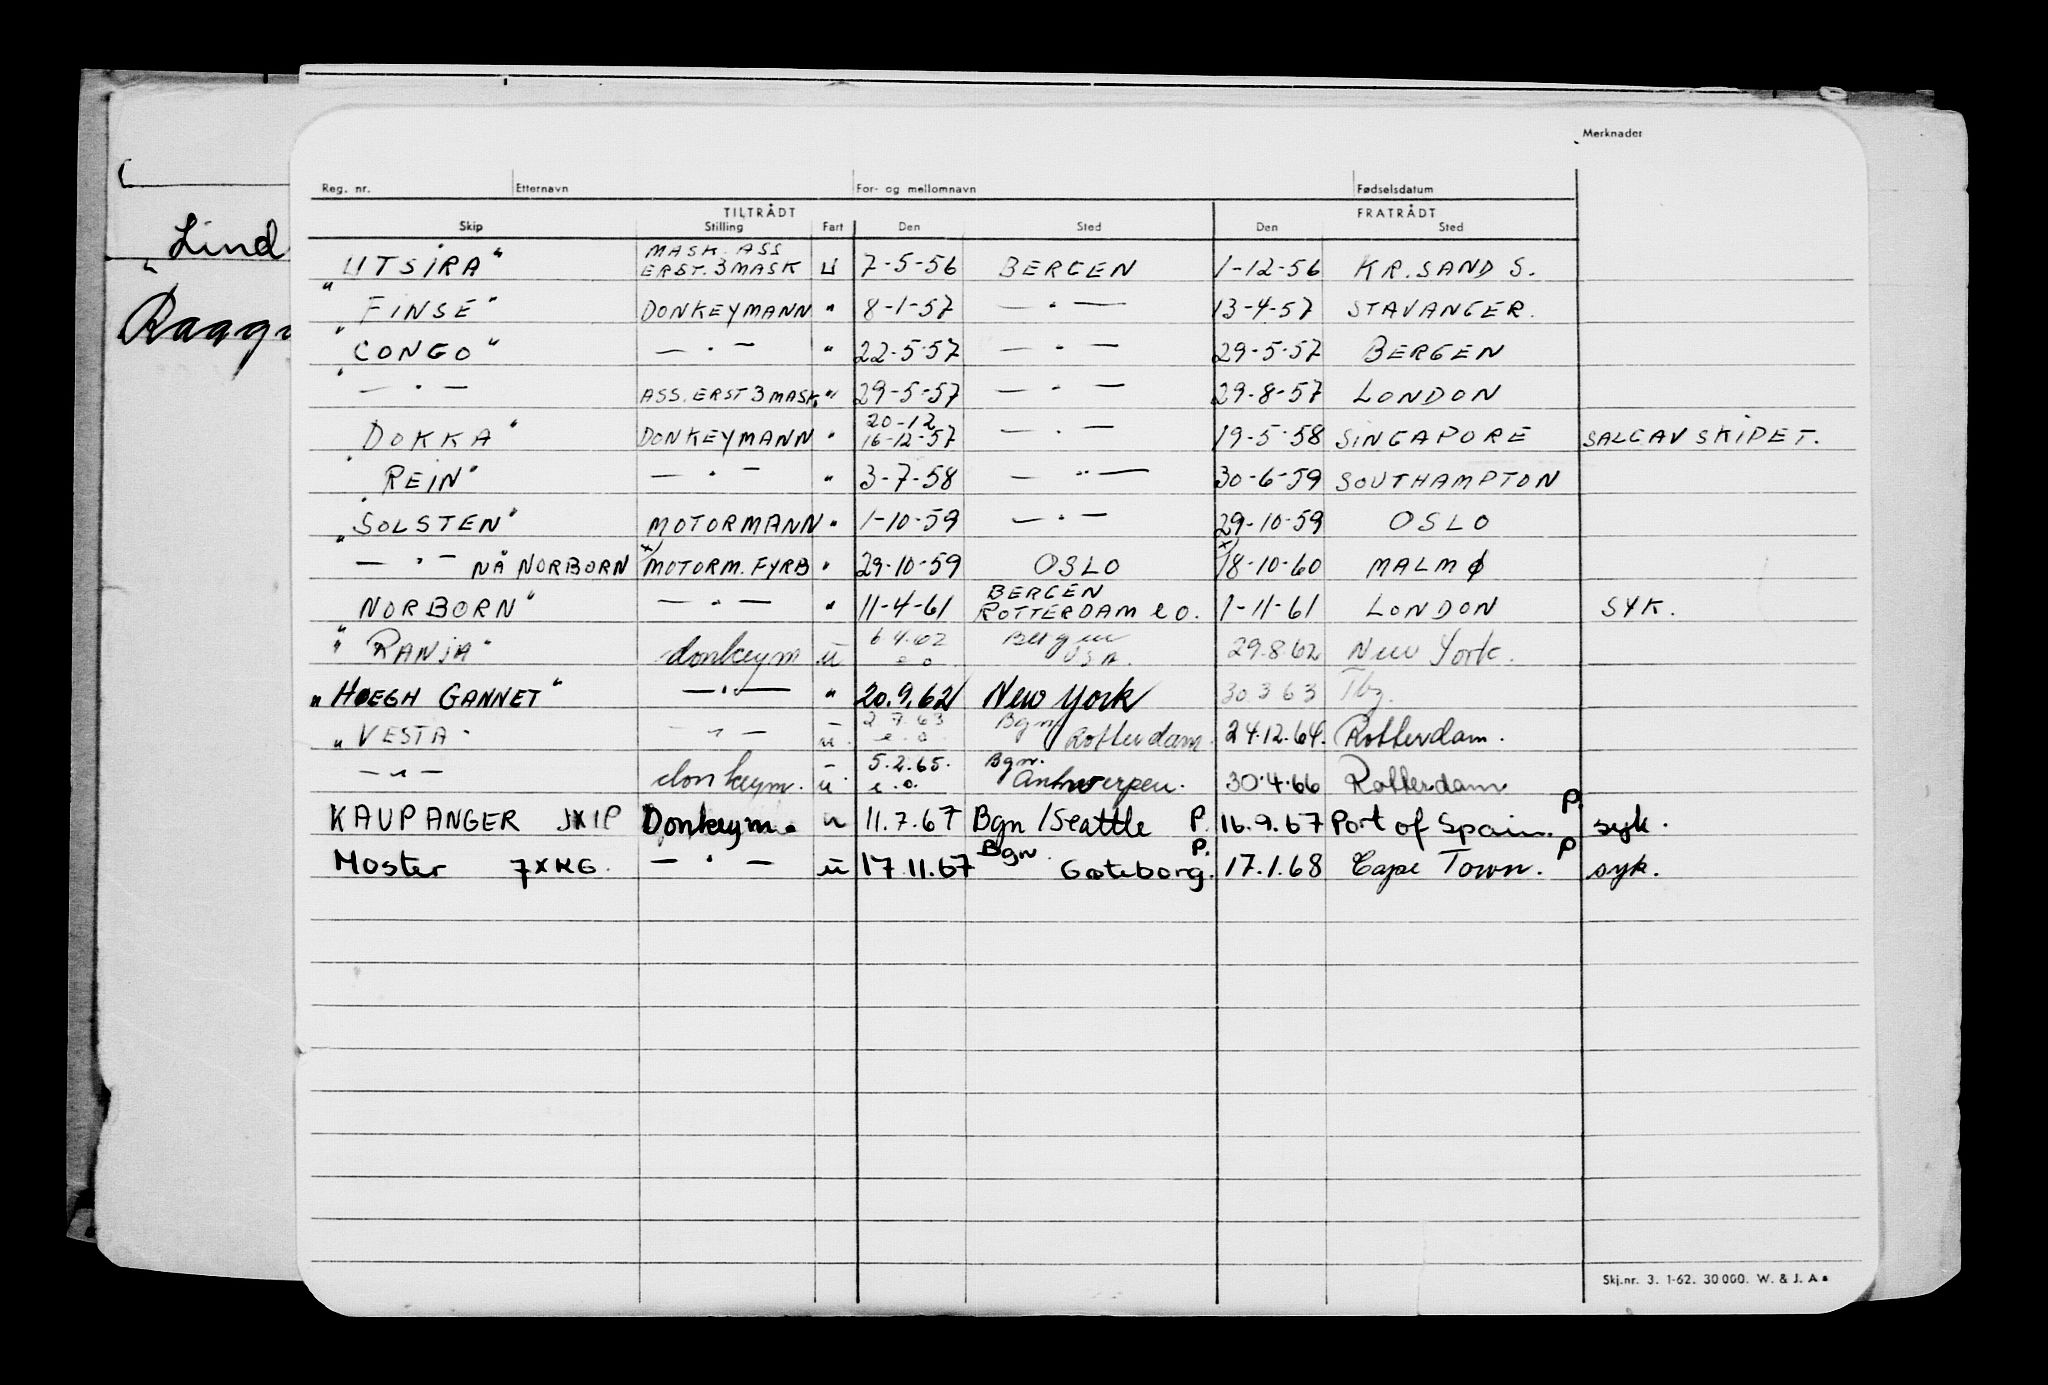 Merknader
Reg. nr. Etternavn For- og mellomnavn Fødselsdatum
TILTRÅDT FRATRÅDT
Skip Stilling Fart Den Sted Den Sted
Lind
MASK. ASS
"UTSIRA" ERST. 3 MASK U 7-5-56 BERGEN 1-12-56 KR. SAND S.
"FINSE" DONKEYMANN " 8-1-57 — " — 13-4-57 STAVANGER.
"CONGO" — " — " 22-5-57 — " — 29-5-57 BERGEN
— " — ASS. ERST 3 MASK. " 29-5-57 — " — 29-8-57 LONDON
20-12
"DOKKA" DONKEYMANN " 16-12-57 — " — 19-5-58 SINGAPORE SALG AV SKIPET.
"REIN" — " — " 3-7-58 — " — 30-6-59 SOUTHAMPTON
"SOLSTEN" MOTORMANN " 1-10-59 — " — 29-10-59 OSLO
— " — NÅ NORBORN x) MOTORM. FYRB " 29-10-59 OSLO x) 18-10-60 MALMØ
BERGEN
"NORBORN" — " — " 11-4-61 ROTTERDAM e o. 1-11-61 LONDON SYK.
6 4.62 Bergen
"RANJA" donkeym ū e o USA. 29.8.62 New York.
"HØEGH GANNET" — " — " 20.9.62 New York 30.3 63 Tbg.
2 7.63 Bgn
"VESTA" — " — ū e. o. Rotterdam. 24.12.64. Rotterdam.
5.2.65. Bgn.
— " — donkeym. ū e. o. Antwerpen. 30.4.66 Rotterdam
KAUPANGER JXIP Donkeym. u 11.7.67 Bgn /Seattle P. 16.9.67 Port of Spain. P. syk.
Bgn P. P
Moster 7XKG. — " — ū 17.11.67 Gøteborg. 17.1.68 Cape Town. syk.
Skj.nr. 3. 1-62. 30 000. W. & J. A s